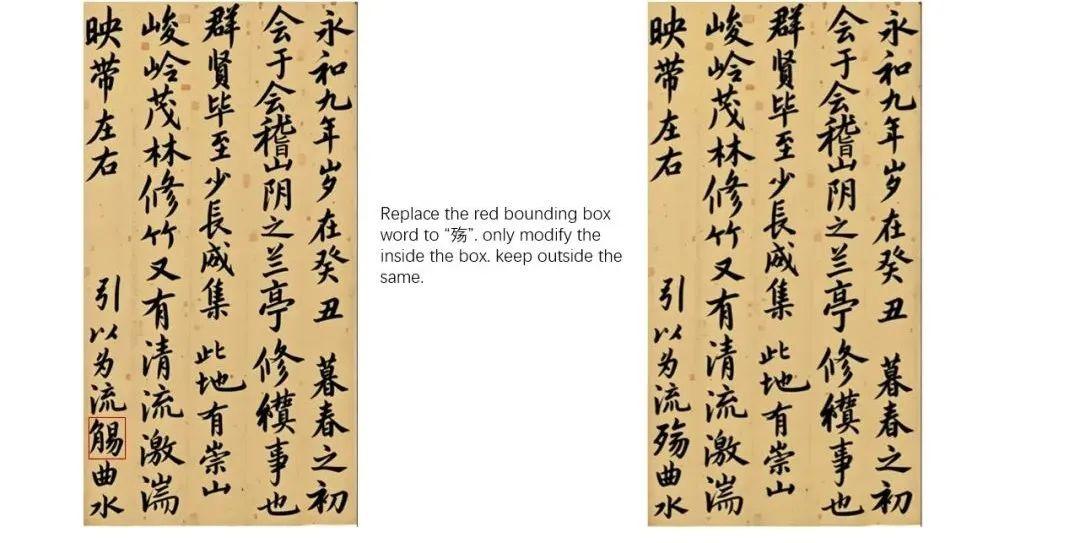 永和九年岁在癸丑 暮春之初
会于会稽山阴之兰亭 修事也
群贤毕至少長咸集 此地有崇山
峻岭茂林修竹又有清流激湍
映带左右 引以为流觞曲水
Replace the red bounding box
word to “殇”. only modify the
inside the box. keep outside the
same.
永和九年岁在癸丑 暮春之初
会于会稽山阴之兰亭 修事也
群贤毕至少長咸集 此地有崇山
峻岭茂林修竹又有清流激湍
映带左右 引以为流殇曲水